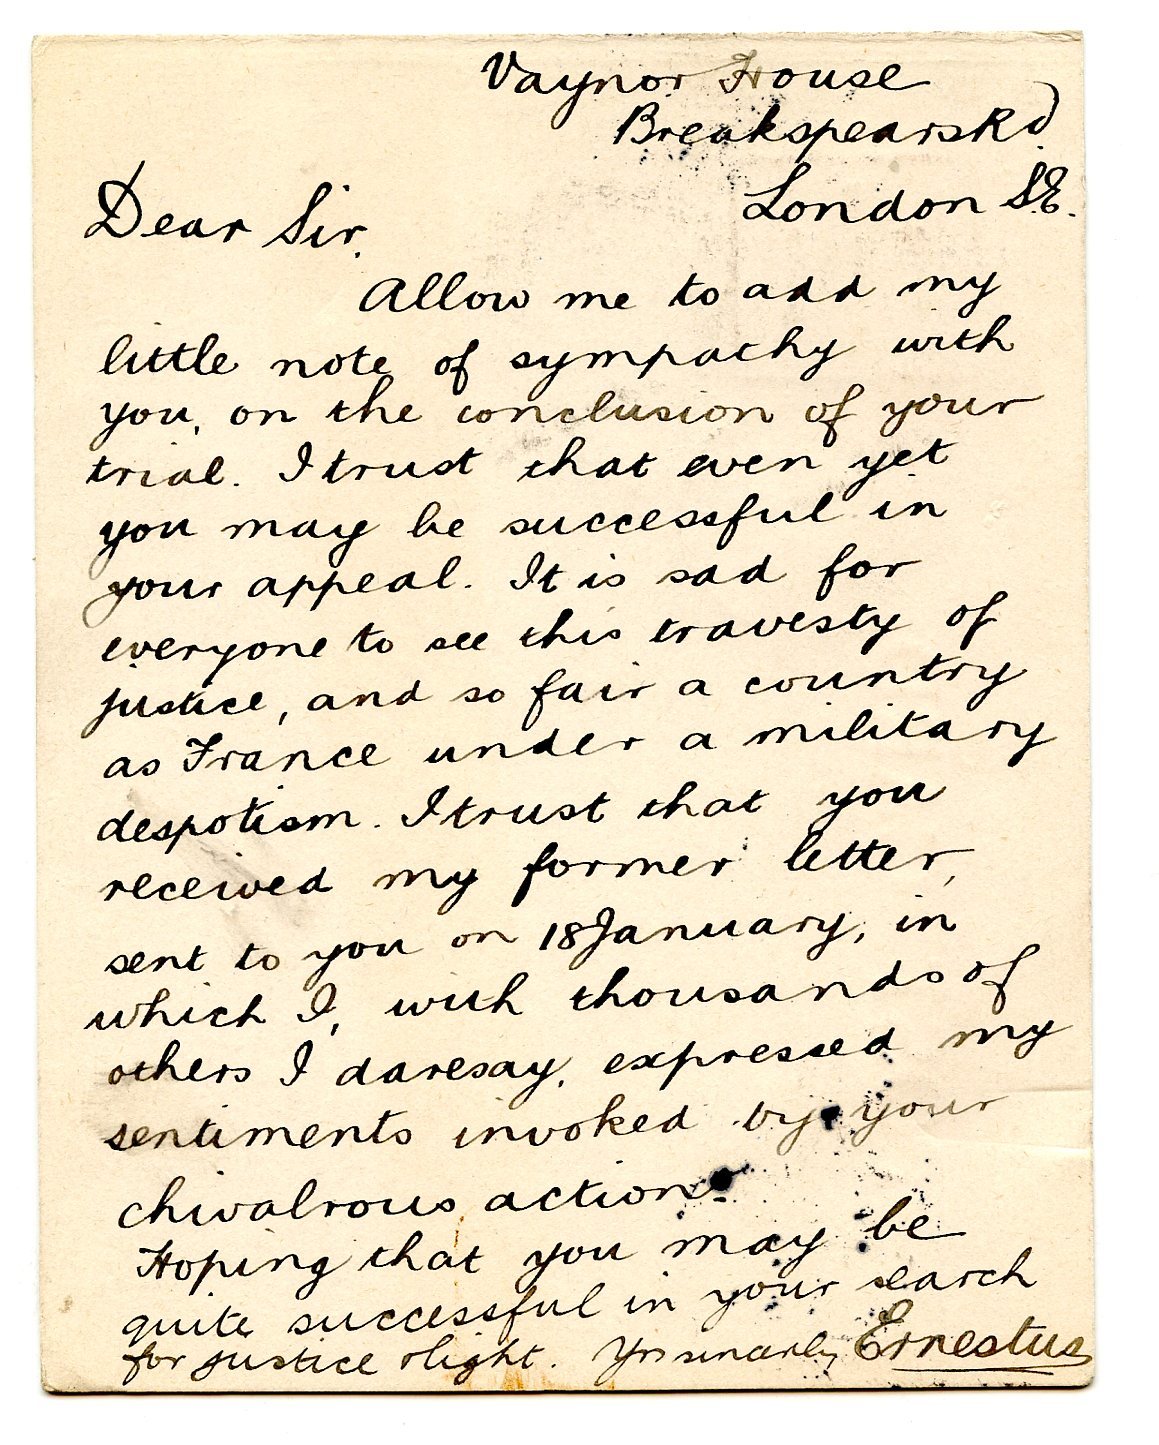 Vaynor House
Breakspears Rd.
London S.E.
Dear Sir,
Allow me to add my
little note of sympathy with
you, on the conclusion of your
trial. I trust that even yet
you may be successful in
your appeal. It is sad for
everyone to see this travesty of
justice, and so fair a country
as France under a military
despotism. I trust that you
received my former letter,
sent to you on 18 January, in
which I, with thousands of
others I daresay, expressed my
sentiments invoked by your
chivalrous action.
Hoping that you may be
quite successful in your search
for justice & light. Yrs sincerely, Ernestus